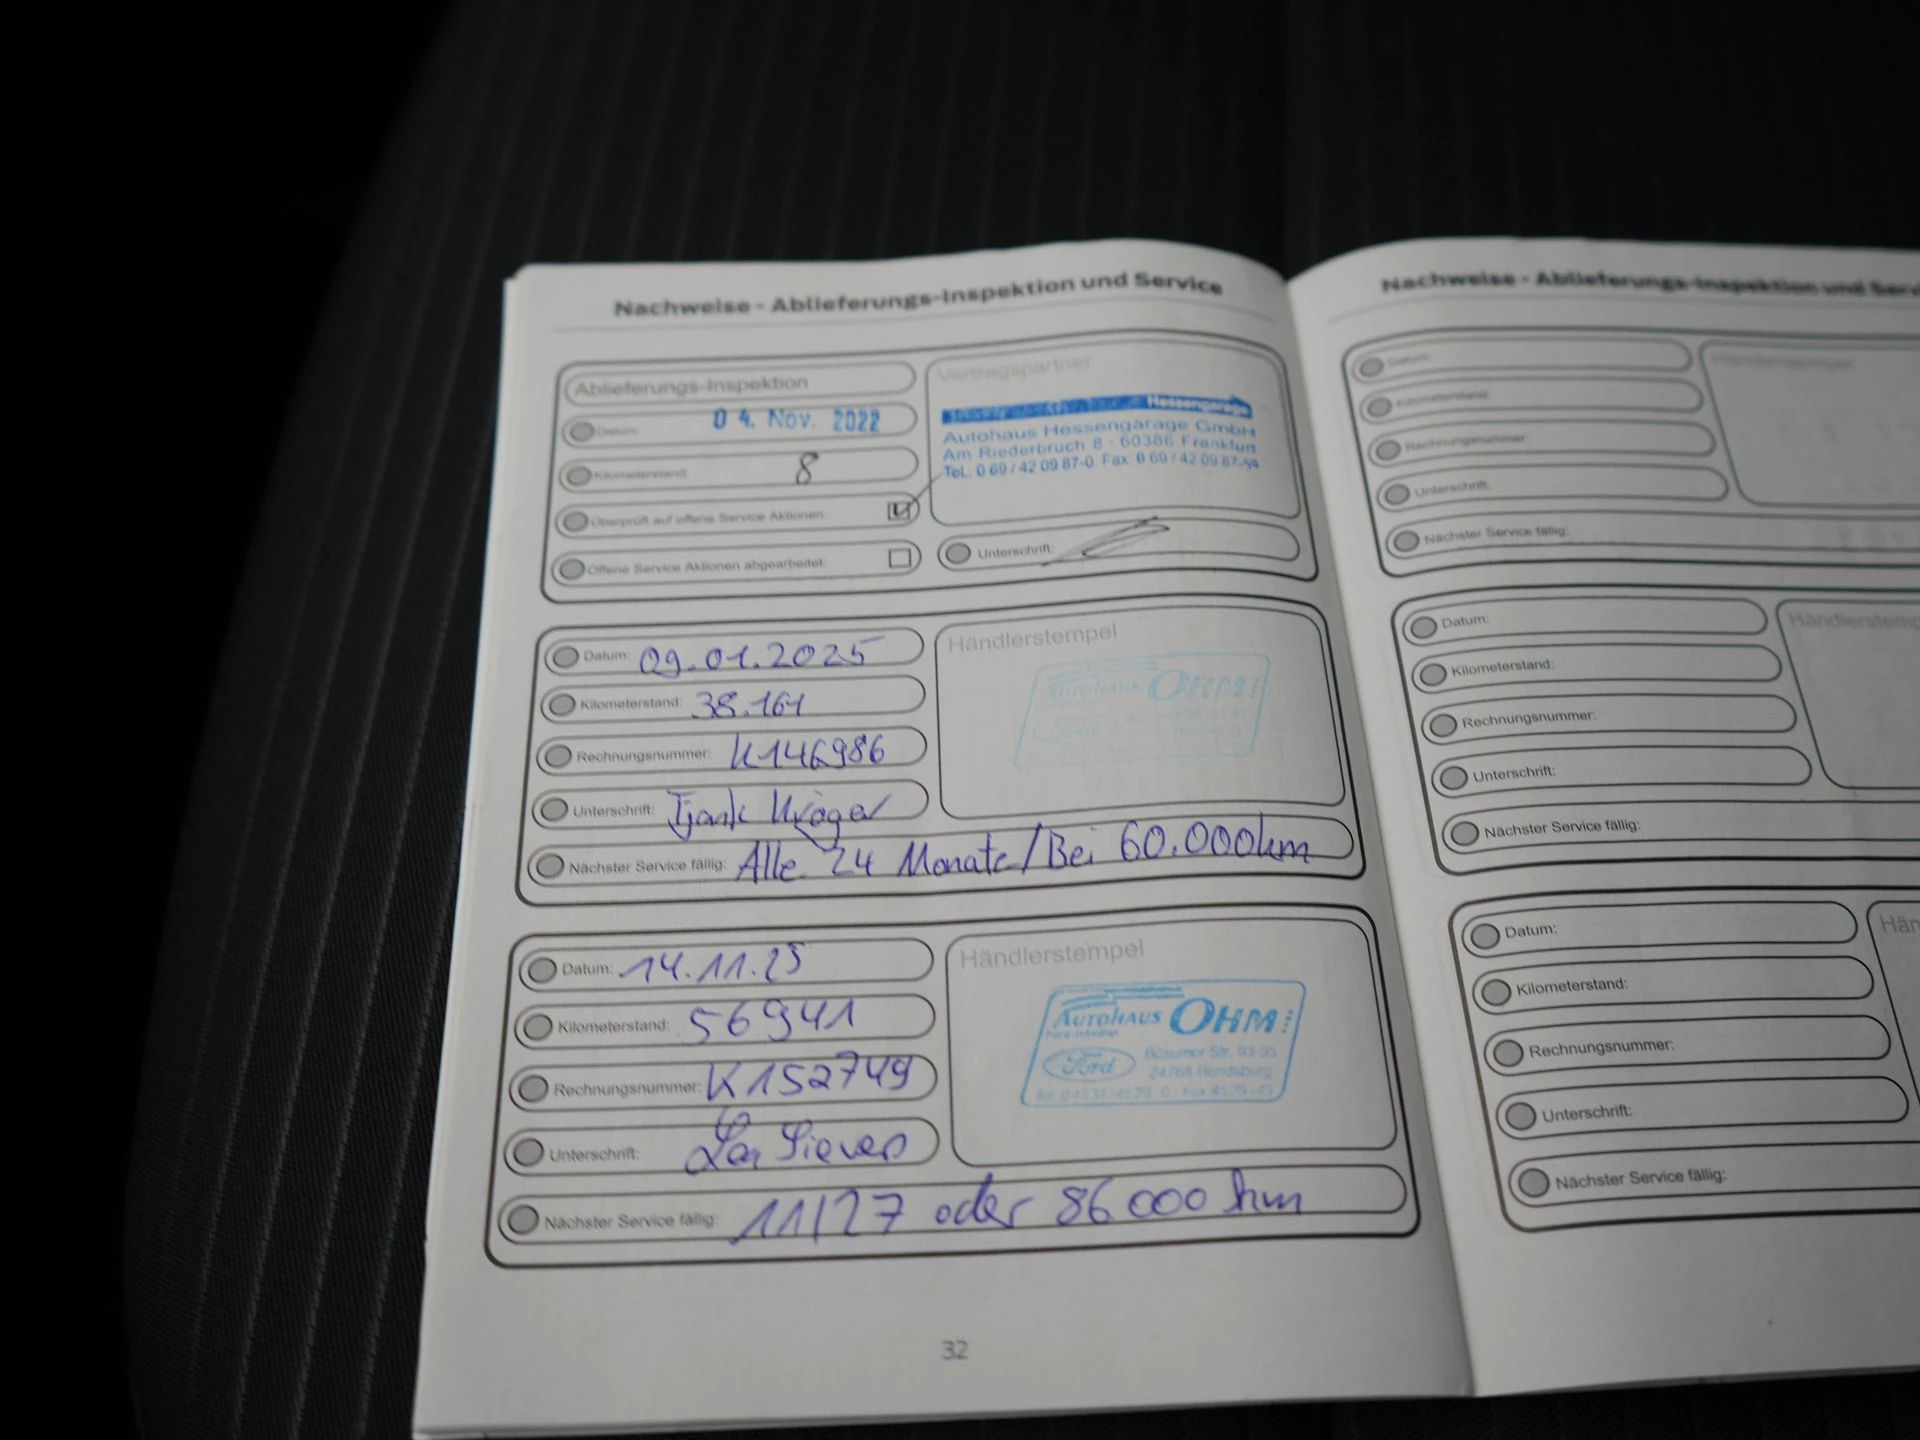 Nachweise - Ablieferungs-Inspektion und Service
Ablieferungs-Inspektion
Datum: 04. Nov. 2022
Kilometerstand: 8
Überprüft auf offene Service Aktionen:
Offene Service Aktionen abgearbeitet:
Vertragspartner
Hessengarage
Autohaus Hessengarage GmbH
Am Riederbruch 8 · 60386 Frankfurt
Tel. 0 69 / 42 09 87-0 Fax 0 69 / 42 09 87-
Unterschrift:
Datum: 09.01.2025
Kilometerstand: 38.161
Rechnungsnummer: K146986
Unterschrift:
Nächster Service fällig: Alle 24 Monate/Bei 60.000km
Händlerstempel
AUTOHAUS OHM
Ford
Datum: 14.11.25
Kilometerstand: 56941
Rechnungsnummer: K152749
Unterschrift:
Nächster Service fällig: 11/27 oder 86000 km
Händlerstempel
AUTOHAUS OHM
Ford-Händler
Ford
Büsumer Str. 93-95
24768 Rendsburg
32
Nachweise - Ablieferungs-Inspektion und
Datum:
Kilometerstand:
Rechnungsnummer:
Unterschrift:
Nächster Service fällig:
Händlerstempel
Datum:
Kilometerstand:
Rechnungsnummer:
Unterschrift:
Nächster Service fällig:
Datum:
Kilometerstand:
Rechnungsnummer:
Unterschrift:
Nächster Service fällig: